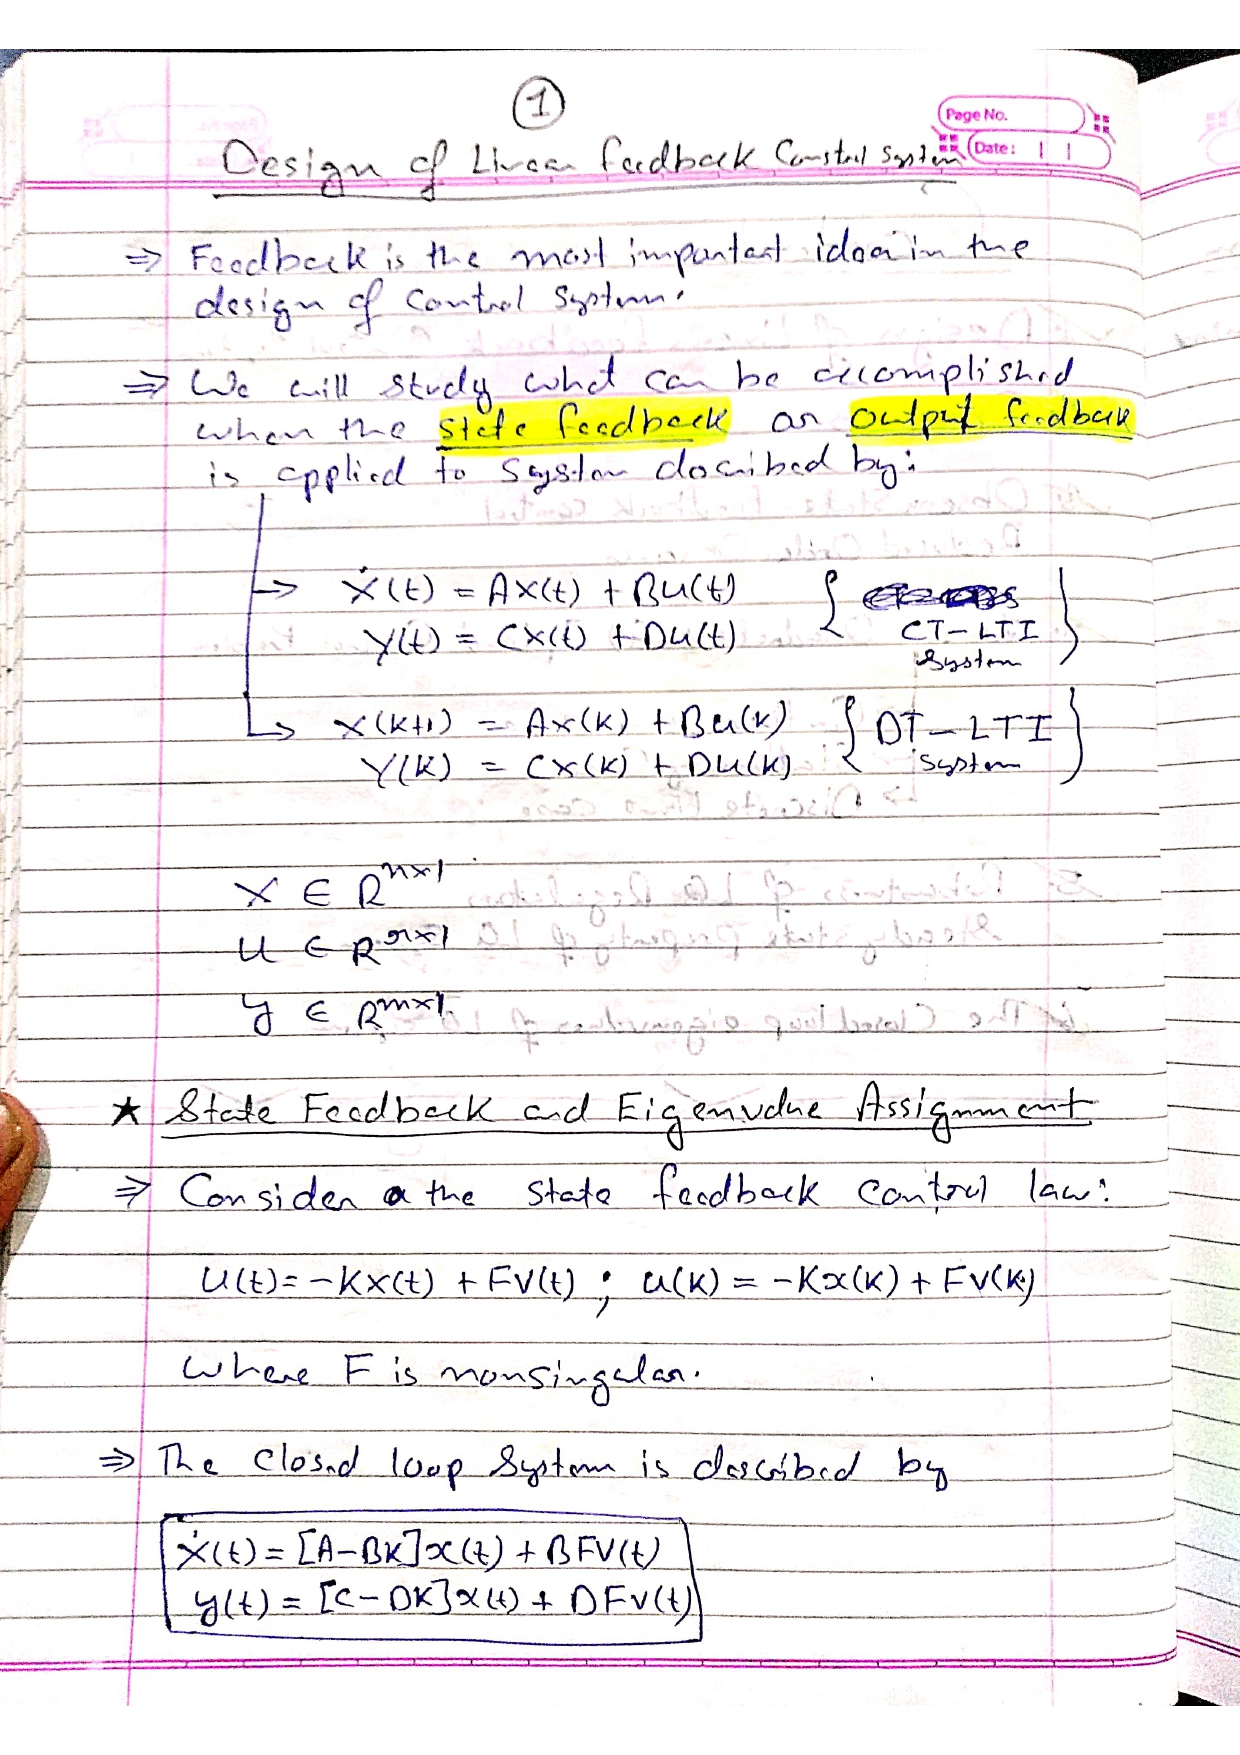 1
Page No.
Date:
Design of Linear Feedback Control System
⇒ Feedback is the most important idea in the
design of control system.
⇒ We will study what can be accomplished
when the state feedback or output feedback
is applied to system described by:
→ Ẋ(t) = AX(t) + BU(t) {
Y(t) = CX(t) + DU(t) CT-LTI
System }
↳ X(K+1) = AX(K) + BU(K) { DT-LTI
Y(K) = CX(K) + DU(K) System }
X ∈ R^{n×1}
U ∈ R^{r×1}
y ∈ R^{m×1}
★ State Feedback and Eigenvalue Assignment
⇒ Consider the state feedback control law:
U(t) = -KX(t) + FV(t) ; U(K) = -Kx(K) + FV(K)
where F is nonsingular.
⇒ The closed loop system is described by
Ẋ(t) = [A-BK]x(t) + BFV(t)
y(t) = [C-DK]x(t) + DFV(t)